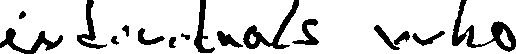 individuals who